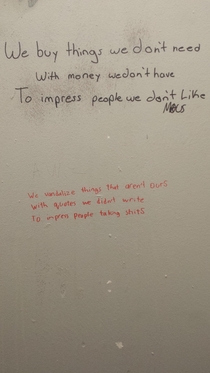 We buy things we don't need
With money we don't have
To impress people we don't Like
We vandalize things that arent ours
with quotes we didnt write
to impress people taking shits